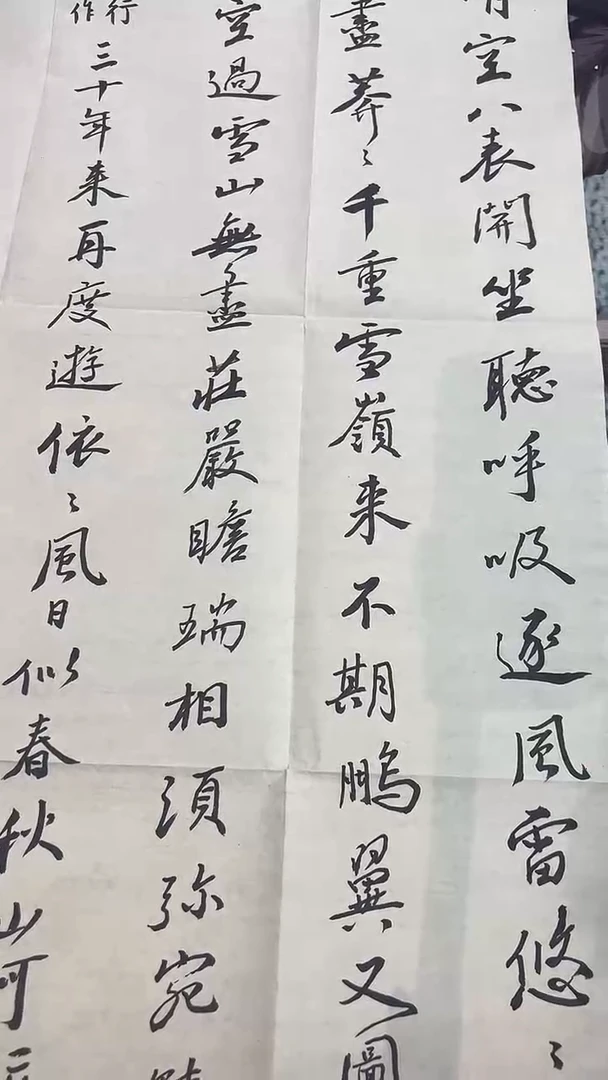 空八表開坐聽呼吸逐風雷悠〻
盡莽〻千重雪嶺来不期鵬翼又圖
空過雪山無盡莊嚴瞻瑞相須弥宛
三十年来再度遊依〻風日似春秋山河
行
作